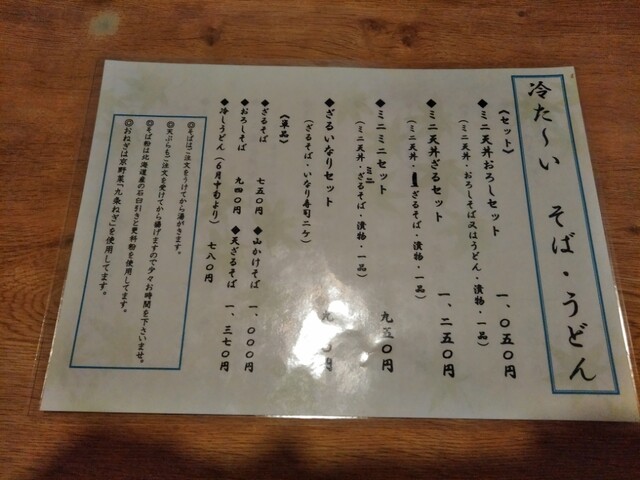 冷た～い そば・うどん
《セット》
◆ミニ天丼おろしセット 一、〇五〇円
（ミニ天丼・おろしそば又はうどん・漬物・一品）
◆ミニ天丼ざるセット 一、二五〇円
（ミニ天丼・ざるそば・漬物・一品）
◆ミニミニセット 九五〇円
（ミニ天丼・ミニざるそば・漬物・一品）
◆ざるいなりセット 九 〇円
（ざるそば・いなり寿司二ケ）
《単品》
◆ざるそば 七五〇円 ◆山かけそば 一、〇〇〇円
◆おろしそば 九四〇円 ◆天ざるそば 一、三七〇円
◆冷しうどん（6月中旬より） 七八〇円
◎そばはご注文をうけてから湯がきます。
◎天ぷらもご注文を受けてから揚げますので少々お時間を下さいませ。
◎そば粉は北海道産の石臼引きと更科粉を使用してます。
◎おねぎは京野菜「九条ねぎ」を使用してます。